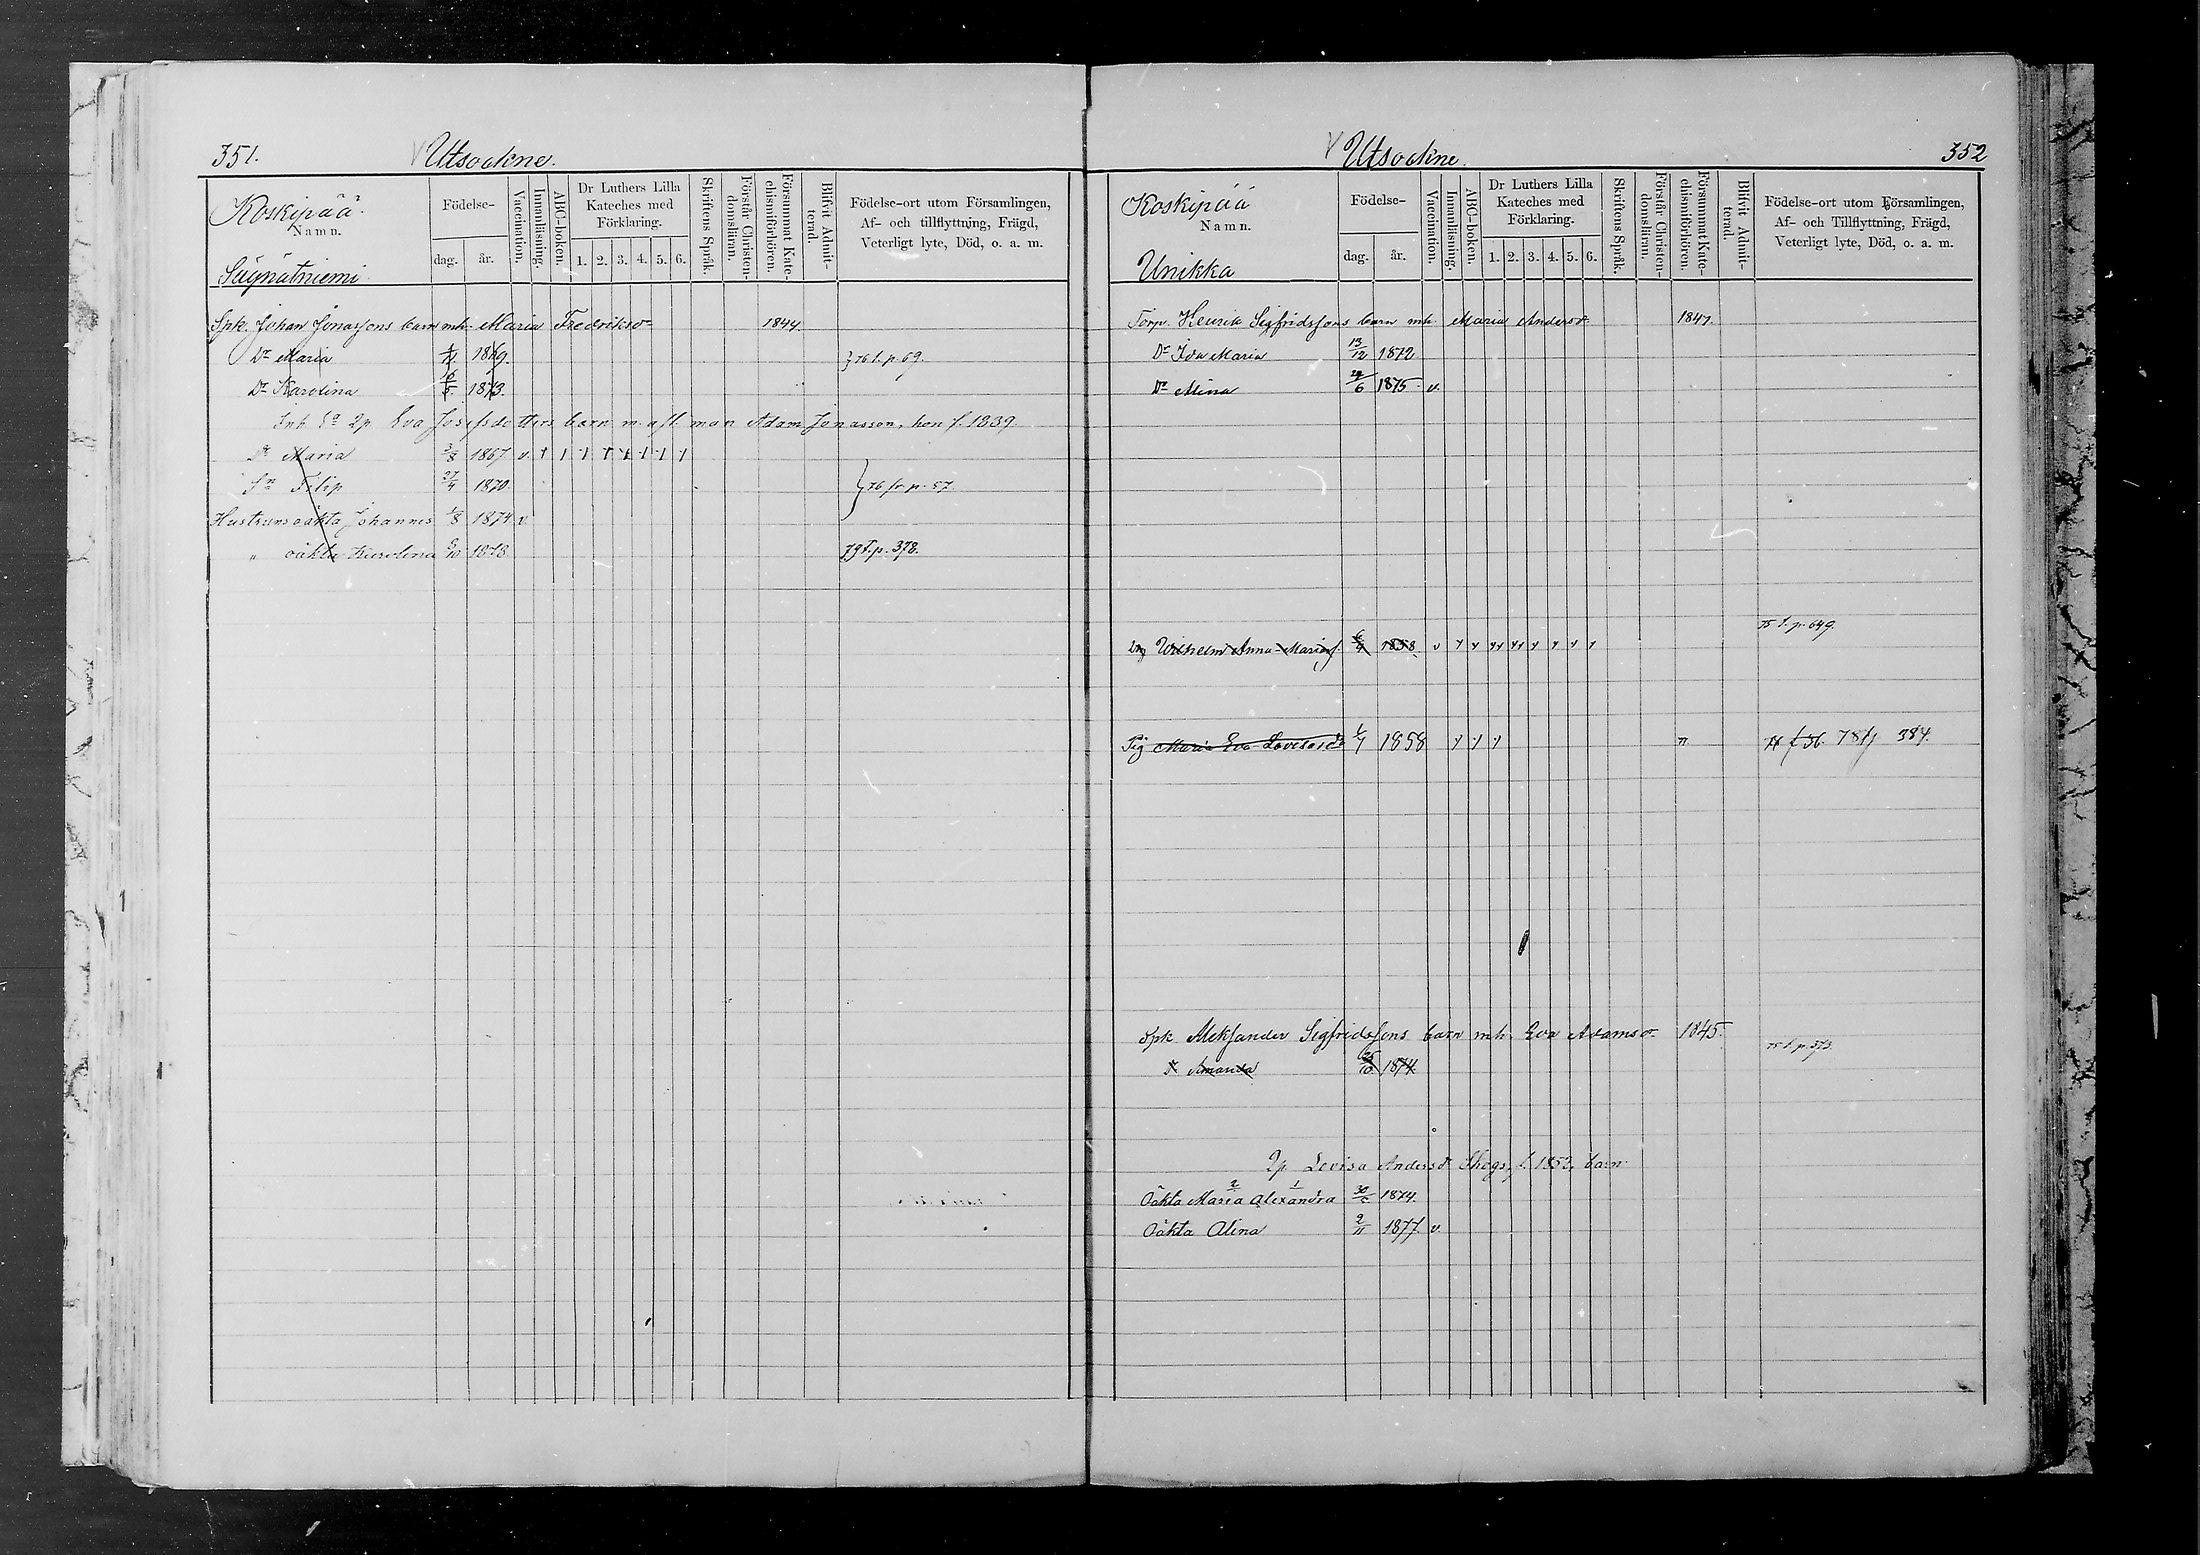 351.
Utsockne.
Koskipää.
Namn.
Säynätniemi.
Födelse-
dag. år.
Vaccination.
Innanläsning.
ABC-boken.
Dr Luthers Lilla Kateches med Förklaring.
1. 2. 3. 4. 5. 6.
Skriftens Språk.
Förstår Christendomsläran.
Försummat Katechismiförhören.
Blifvit Admitterad.
Födelse-ort utom Församlingen, Af- och tillflyttning, Frägd, Veterligt lyte, Död, o. a. m.
Spk. Johan Jonassons barn mh. Maria Fredriksd 1844.
Dr Maria 1869. 76 t. p. 69.
Dr Karolina 1873.
Inh Sa 2p Eva Josefsdotters barn m. afl. man Adam Jonasson, hon f. 1839.
Dr Maria 3/8 1867. v.
Sn Filip 27/4 1870. 76 fr p. 57.
Hustruns oäkta Johannes 1/8 1874 v.
" oäkta Karolina 1878 79 t. p. 378.
352
Utsockne.
Koskipää
Namn.
Unikka
Födelse-
dag. år.
Vaccination.
Innanläsning.
ABC-boken.
Dr Luthers Lilla Kateches med Förklaring.
1. 2. 3. 4. 5. 6.
Skriftens Språk.
Förstår Christendomsläran.
Försummat Katechismiförhören.
Blifvit Admitterad.
Födelse-ort utom Församlingen, Af- och Tillflyttning, Frägd, Veterligt lyte, Död, o. a. m.
Torp. Henrik Sigfridssons barn mh. Maria Andersd. 1847.
Dr Ida Maria 13/12 1872
Dr Mina 1875. v.
75 t. p. 649.
Wilhelm Anna-Mariaf. 1858. v
Pig Maria Eva Lovisasd. 1858 77 t 36. 78 tf 384.
Spk Aleksander Sigfridssons barn mh. Eva Adamsd. 1845.
75 t. p. 373.
Dr Amanda 1874.
2p Lovisa Andersd Skogs, f. 1852, barn
Oäkta Maria Alexandra 1874.
2 1
Oäkta Alina 9/11 1877. v.